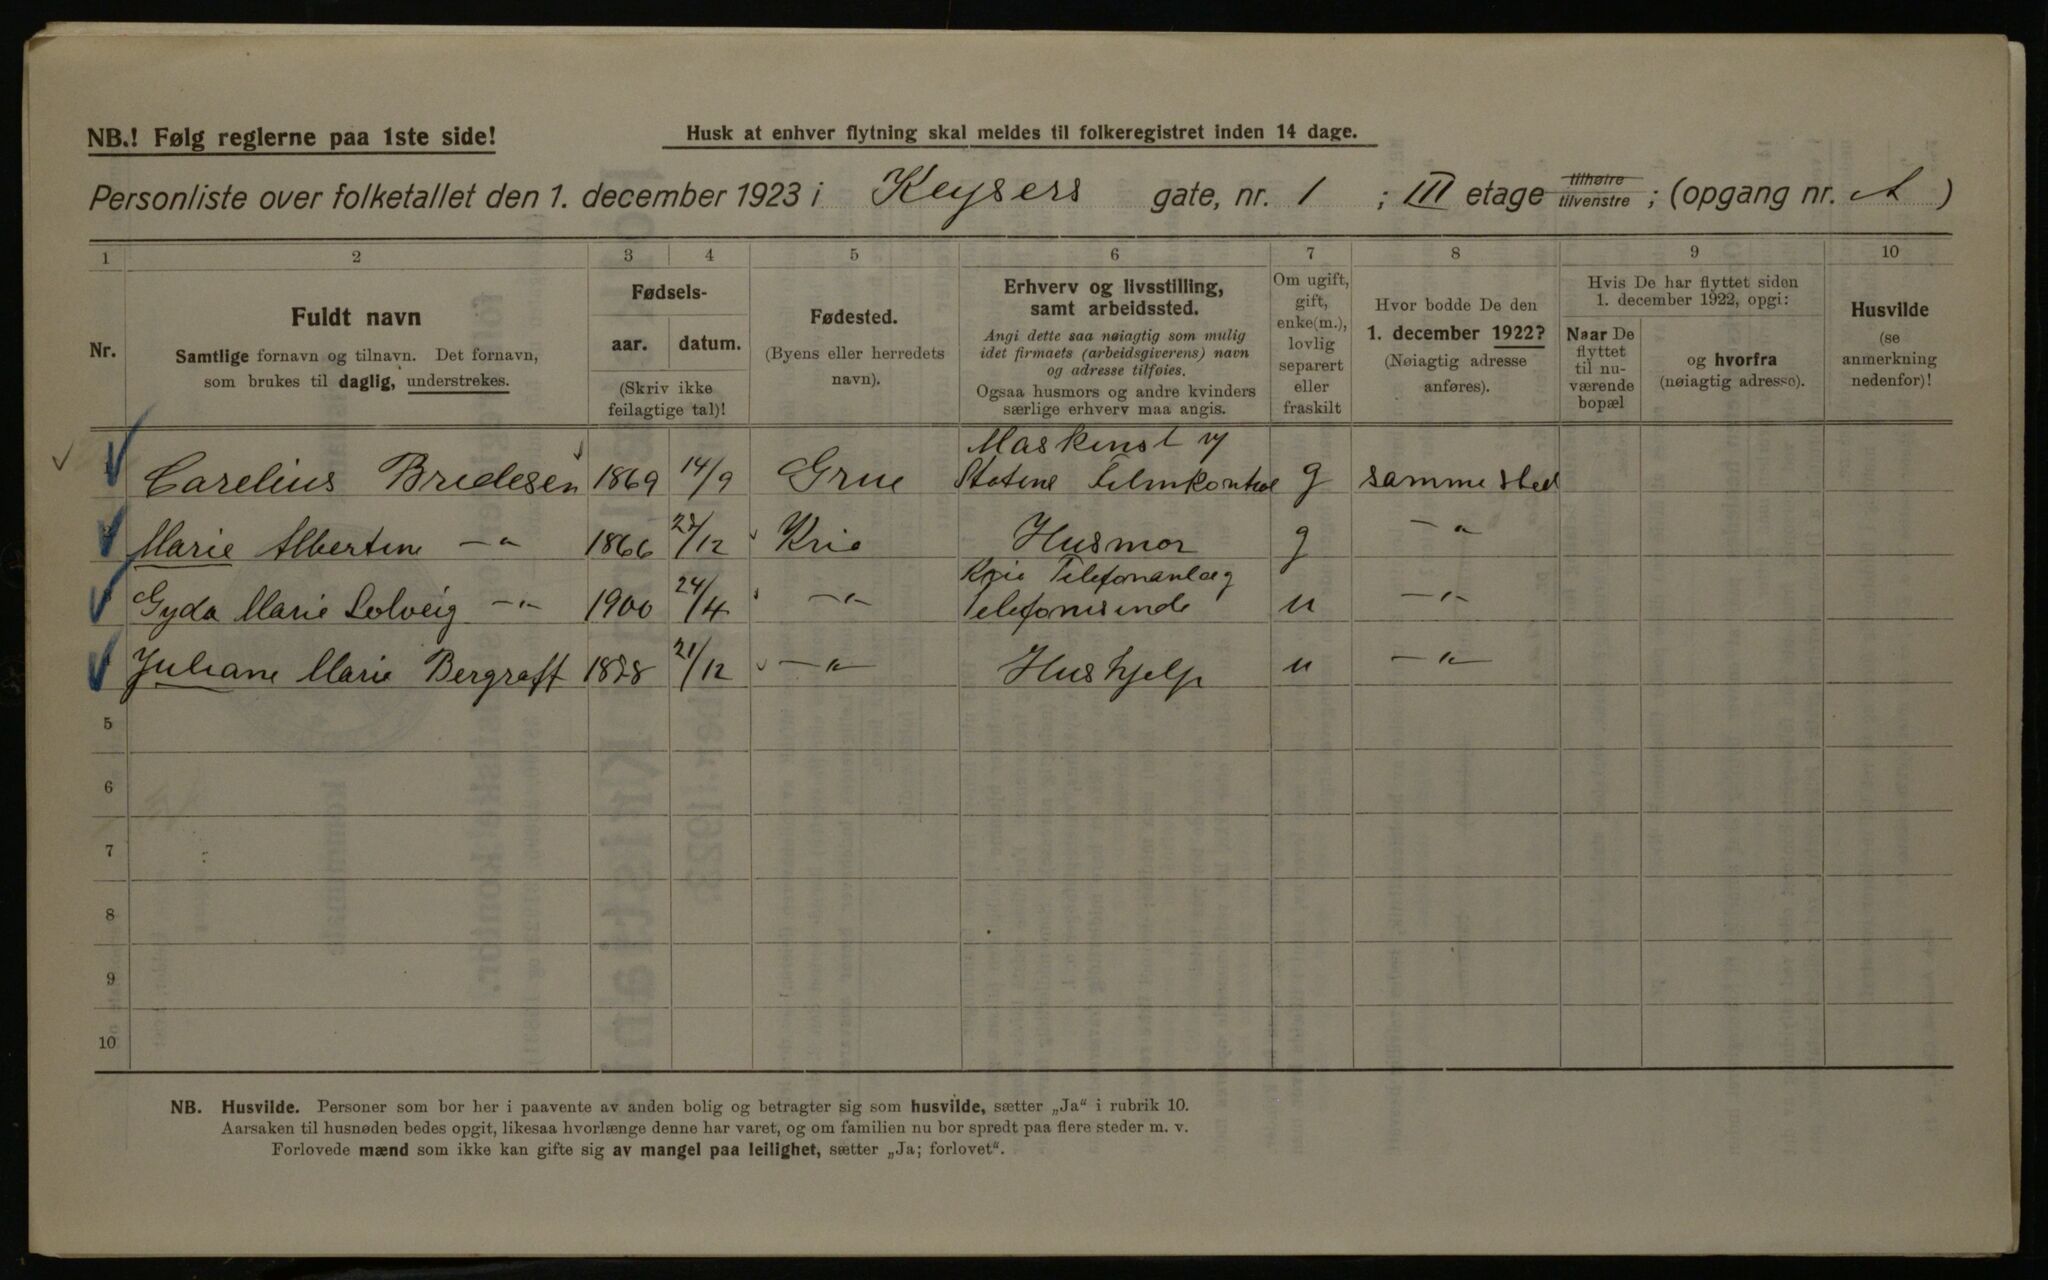 NB.! Følg reglerne paa 1ste side!
Husk at enhver flytning skal meldes til folkeregistret inden 14 dage.
Personliste over folketallet den 1. december 1923 i Keysers gate, nr. 1 ; III etage tilhøire tilvenstre ; (opgang nr. A )
1 2 3 4 5 6 7 8 9 10
Nr.
Fuldt navn
Samtlige fornavn og tilnavn. Det fornavn,
som brukes til daglig, understrekes.
Fødsels-
aar. datum.
(Skriv ikke
feilagtige tal)!
Fødested.
(Byens eller herredets
navn).
Erhverv og livsstilling,
samt arbeidssted.
Angi dette saa nøiagtig som mulig
idet firmaets (arbeidsgiverens) navn
og adresse tilføies.
Ogsaa husmors og andre kvinders
særlige erhverv maa angis.
Om ugift,
gift,
enke(m.),
lovlig
separert
eller
fraskilt
Hvor bodde De den
1. december 1922?
(Nøiagtig adresse
anføres).
Hvis De har flyttet siden
1. december 1922, opgi:
Naar De
flyttet
til nu-
værende
bopæl
og hvorfra
(nøiagtig adresse).
Husvilde
(se
anmerkning
nedenfor)!
Maskinst v/
Carelius Bredesen 1869 14/9 Grue Statens Filmkontrol g samme sted
Marie Albertine -"- 1866 /12 Kria Husmor g -"-
Kria Telefonanlæg
Gyda Marie Solveig -"- 1900 24/4 -"- Telefonistinde u -"-
Juliane Marie 1878 21/12 -"- Hushjelp u -"-
5
6
7
8
9
10
NB. Husvilde. Personer som bor her i paavente av anden bolig og betragter sig som husvilde, sætter „Ja“ i rubrik 10.
Aarsaken til husnøden bedes opgit, likesaa hvorlænge denne har varet, og om familien nu bor spredt paa flere steder m. v.
Forlovede mænd som ikke kan gifte sig av mangel paa leilighet, sætter „Ja; forlovet“.